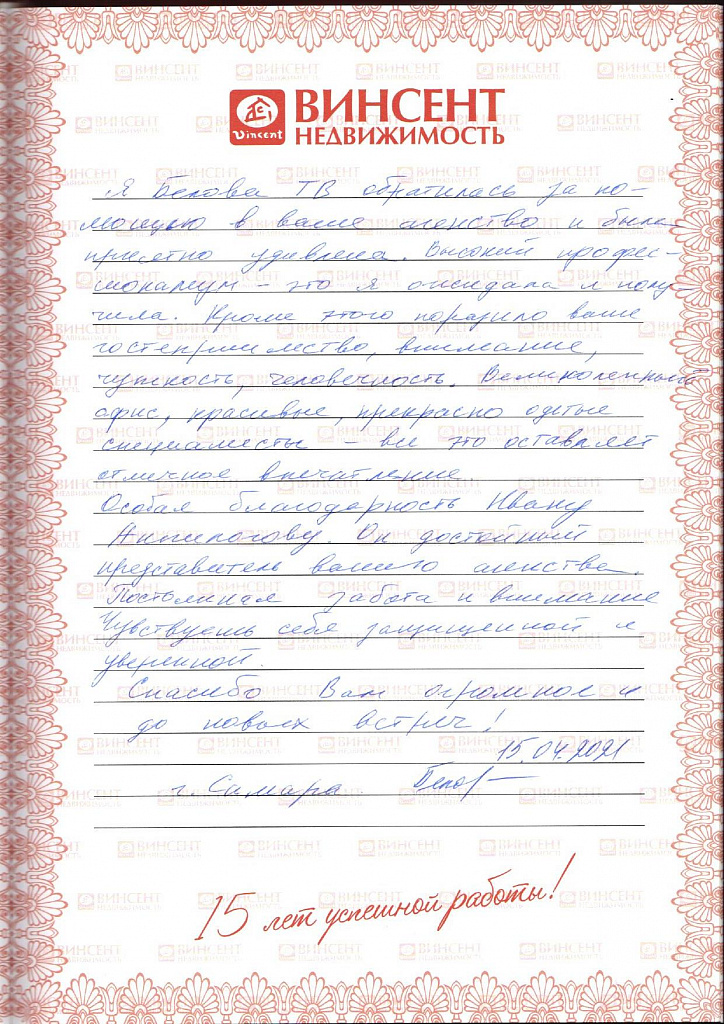 Vincent
ВИНСЕНТ
НЕДВИЖИМОСТЬ
Я Белова ТВ обратилась за по-
мощью в ваше агенство и была
приятно удивлена. Высокий профес-
сионализм - это я ожидала и полу-
чила. Кроме этого поразило ваше
гостеприимство, внимание,
чуткость, человечность. Великолепный
офис, красивые, прекрасно одетые
специалисты - все это оставляет
отличное впечатление
Особая благодарность Ивану
Анпилогову. Он достойный
представитель вашего агенства.
Постоянная забота и внимание
Чувствуешь себя защищенной и
уверенной.
Спасибо Вам огромное и
до новых встреч!
15.04.2021
г. Самара
15 лет успешной работы!